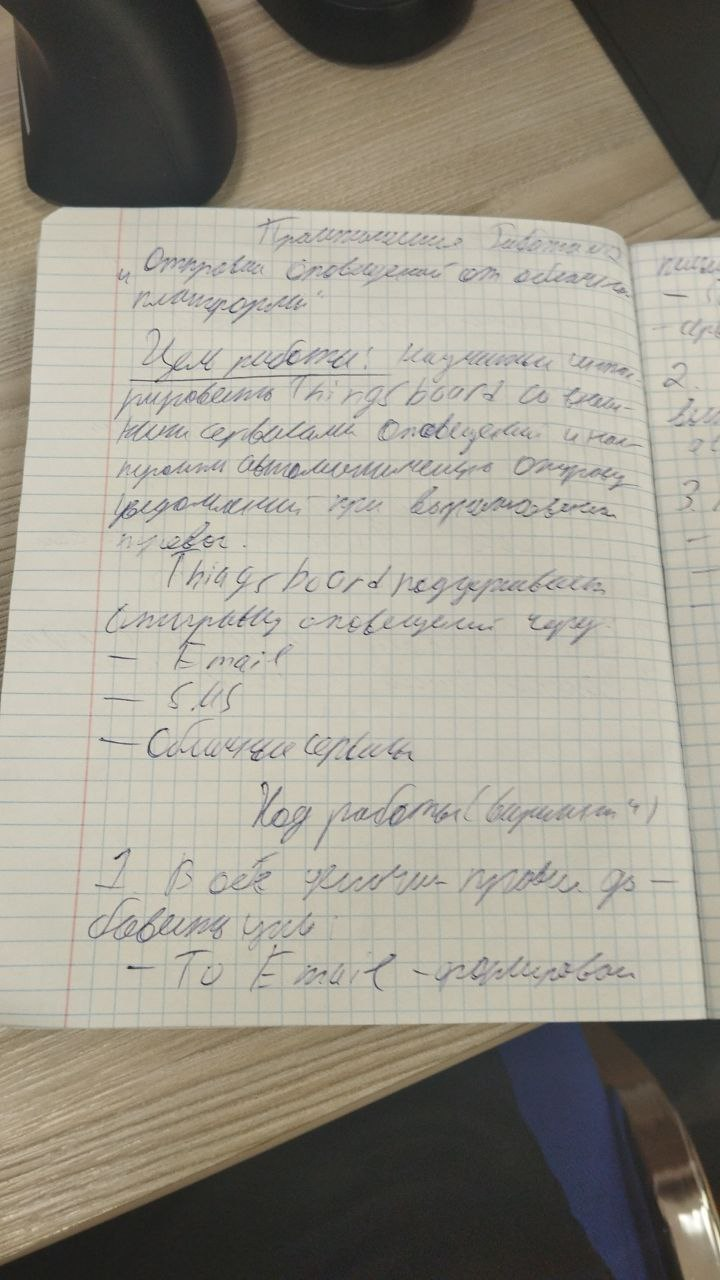 Практическая работа №2
"Отправка оповещений от облачной
платформы"
Цель работы: Научиться интег-
рировать Thingsboard со внеш-
ними сервисами оповещений и нас-
троить автоматическую отправку
уведомлений при
тревог.
Thingsboard поддерживает
отправку оповещений через
— Email
— SMS
— Облачные сервисы
Ход работы (вариант 4)
1. В обе цепочки правил до-
бавить узлы:
— To Email -формирован
2.
3.